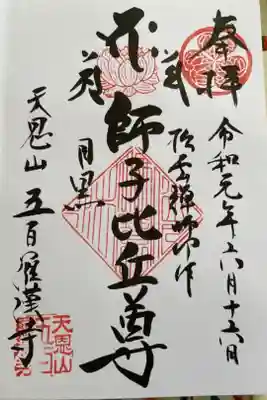 奉拝
令和元年六月十六日
松雲禅師作
師子比丘尊
目黒
天恩山 五百羅漢寺
天恩山